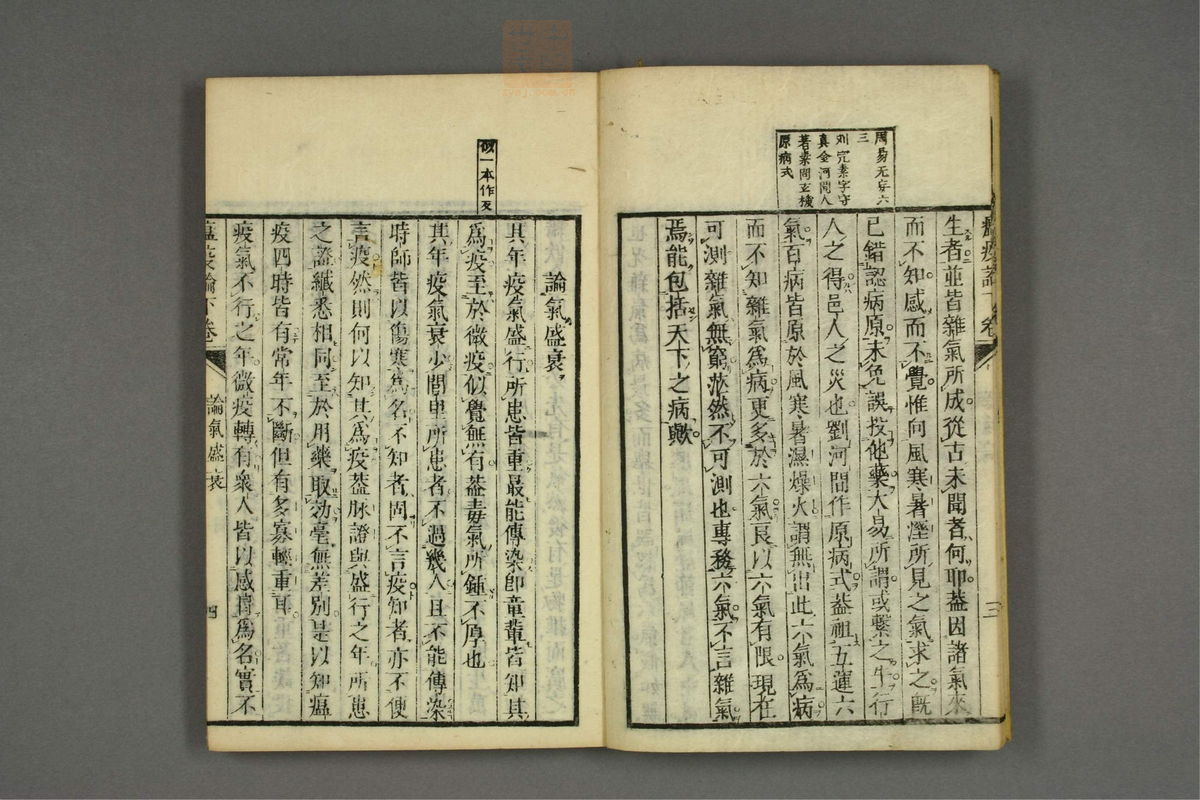 瘟疫論下卷
三
生者並皆雜氣所成從古未聞者何耶葢因諸氣來
而不知感而不覺惟向風寒暑溼所見之氣求之既
已錯認病原未免誤投他藥大易所謂或繫之牛行
人之得邑人之災也劉河間作原病式葢祖五運六
氣百病皆原於風寒暑濕燥火謂無出此六氣爲病
而不知雜氣爲病更多於六氣良以六氣有限現在
可測雜氣無窮茫然不可測也專務六氣不言雜氣
焉能包括天下之病歟
周易无妄六
三
刘完素字守
真金河間人
著素問玄機
原病式
論氣盛衰
其年疫氣盛行所患皆重最能傳染即童輩皆知其
爲疫至於微疫似覺無有葢毒氣所鍾不厚也
其年疫氣衰少閭里所患者不過幾人且不能傳染
時師皆以傷寒爲名不知者固不言疫知者亦不便
言疫然則何以知其爲疫葢脉證與盛行之年所患
之證纎悉相同至於用藥取効毫無差別是以知瘟
疫四時皆有常年不斷但有多寡輕重耳
疫氣不行之年微疫轉有衆人皆以感冒爲名實不
似一本作反
瘟疫論下卷
論氣盛衰
四